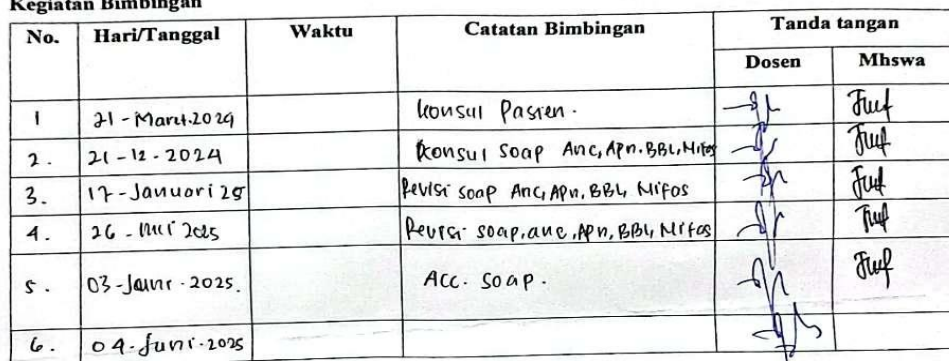 Kegiatan Bimbingan
No. Hari/Tanggal Waktu Catatan Bimbingan Tanda tangan
Dosen Mhswa
1 21 - Maret. 2024 Konsul Pasien.
2. 21 - 12 - 2024 Konsul Soap Anc, Apn. BBL, Nifas
3. 17 - Januari 25 Revisi soap Anc, Apn, BBL, Nifas
4. 26 - Mei 2025 Revisi soap, anc, Apn, BBL, Nifas
5. 03 - Juni - 2025. Acc. soap.
6. 04 - Juni - 2025